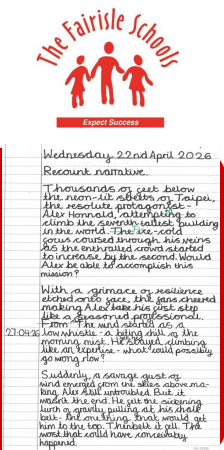 The Fairisle Schools
Expect Success
Wednesday 22nd April 2026
Recount narrative.
Thousands of feet below
the neon-lit streets of Taipei,
the resolute protagonist -
Alex Honnold, attempting to
climb the seventh tallest building
in the world. The ice-cold
focus coursed through his veins
as the enthralled crowd started
to increase by the second. Would
Alex be able to accomplish this
mission?
With a grimace of resilience
etched onto face, the fans cheered
making Alex take his first step
like a seasoned professional.
From The wind started as a
27-04-2026 low whistle - a biting chill of the
morning mist. He stayed climbing
like an expertise - what could possibly
go wrong now?
Suddenly, a savage gust of
wind emerged from the skies above ma-
king Alex still untroubled. But it
wasn't the end. He felt the sickening
lurch of gravity pulling at his chalk
belt - the one thing that would get
him to the top. Then it fell. The
worst that could have conceivably
happened.